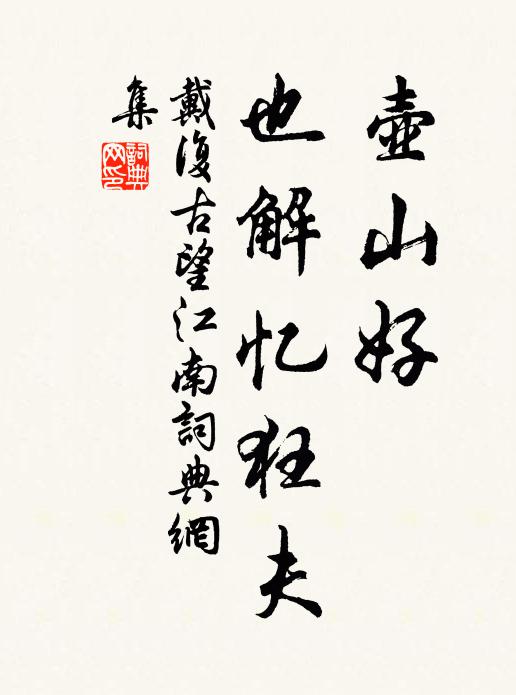 壺山好
也解忆狂夫
戴復古望江南詞典網
集
詞典网印